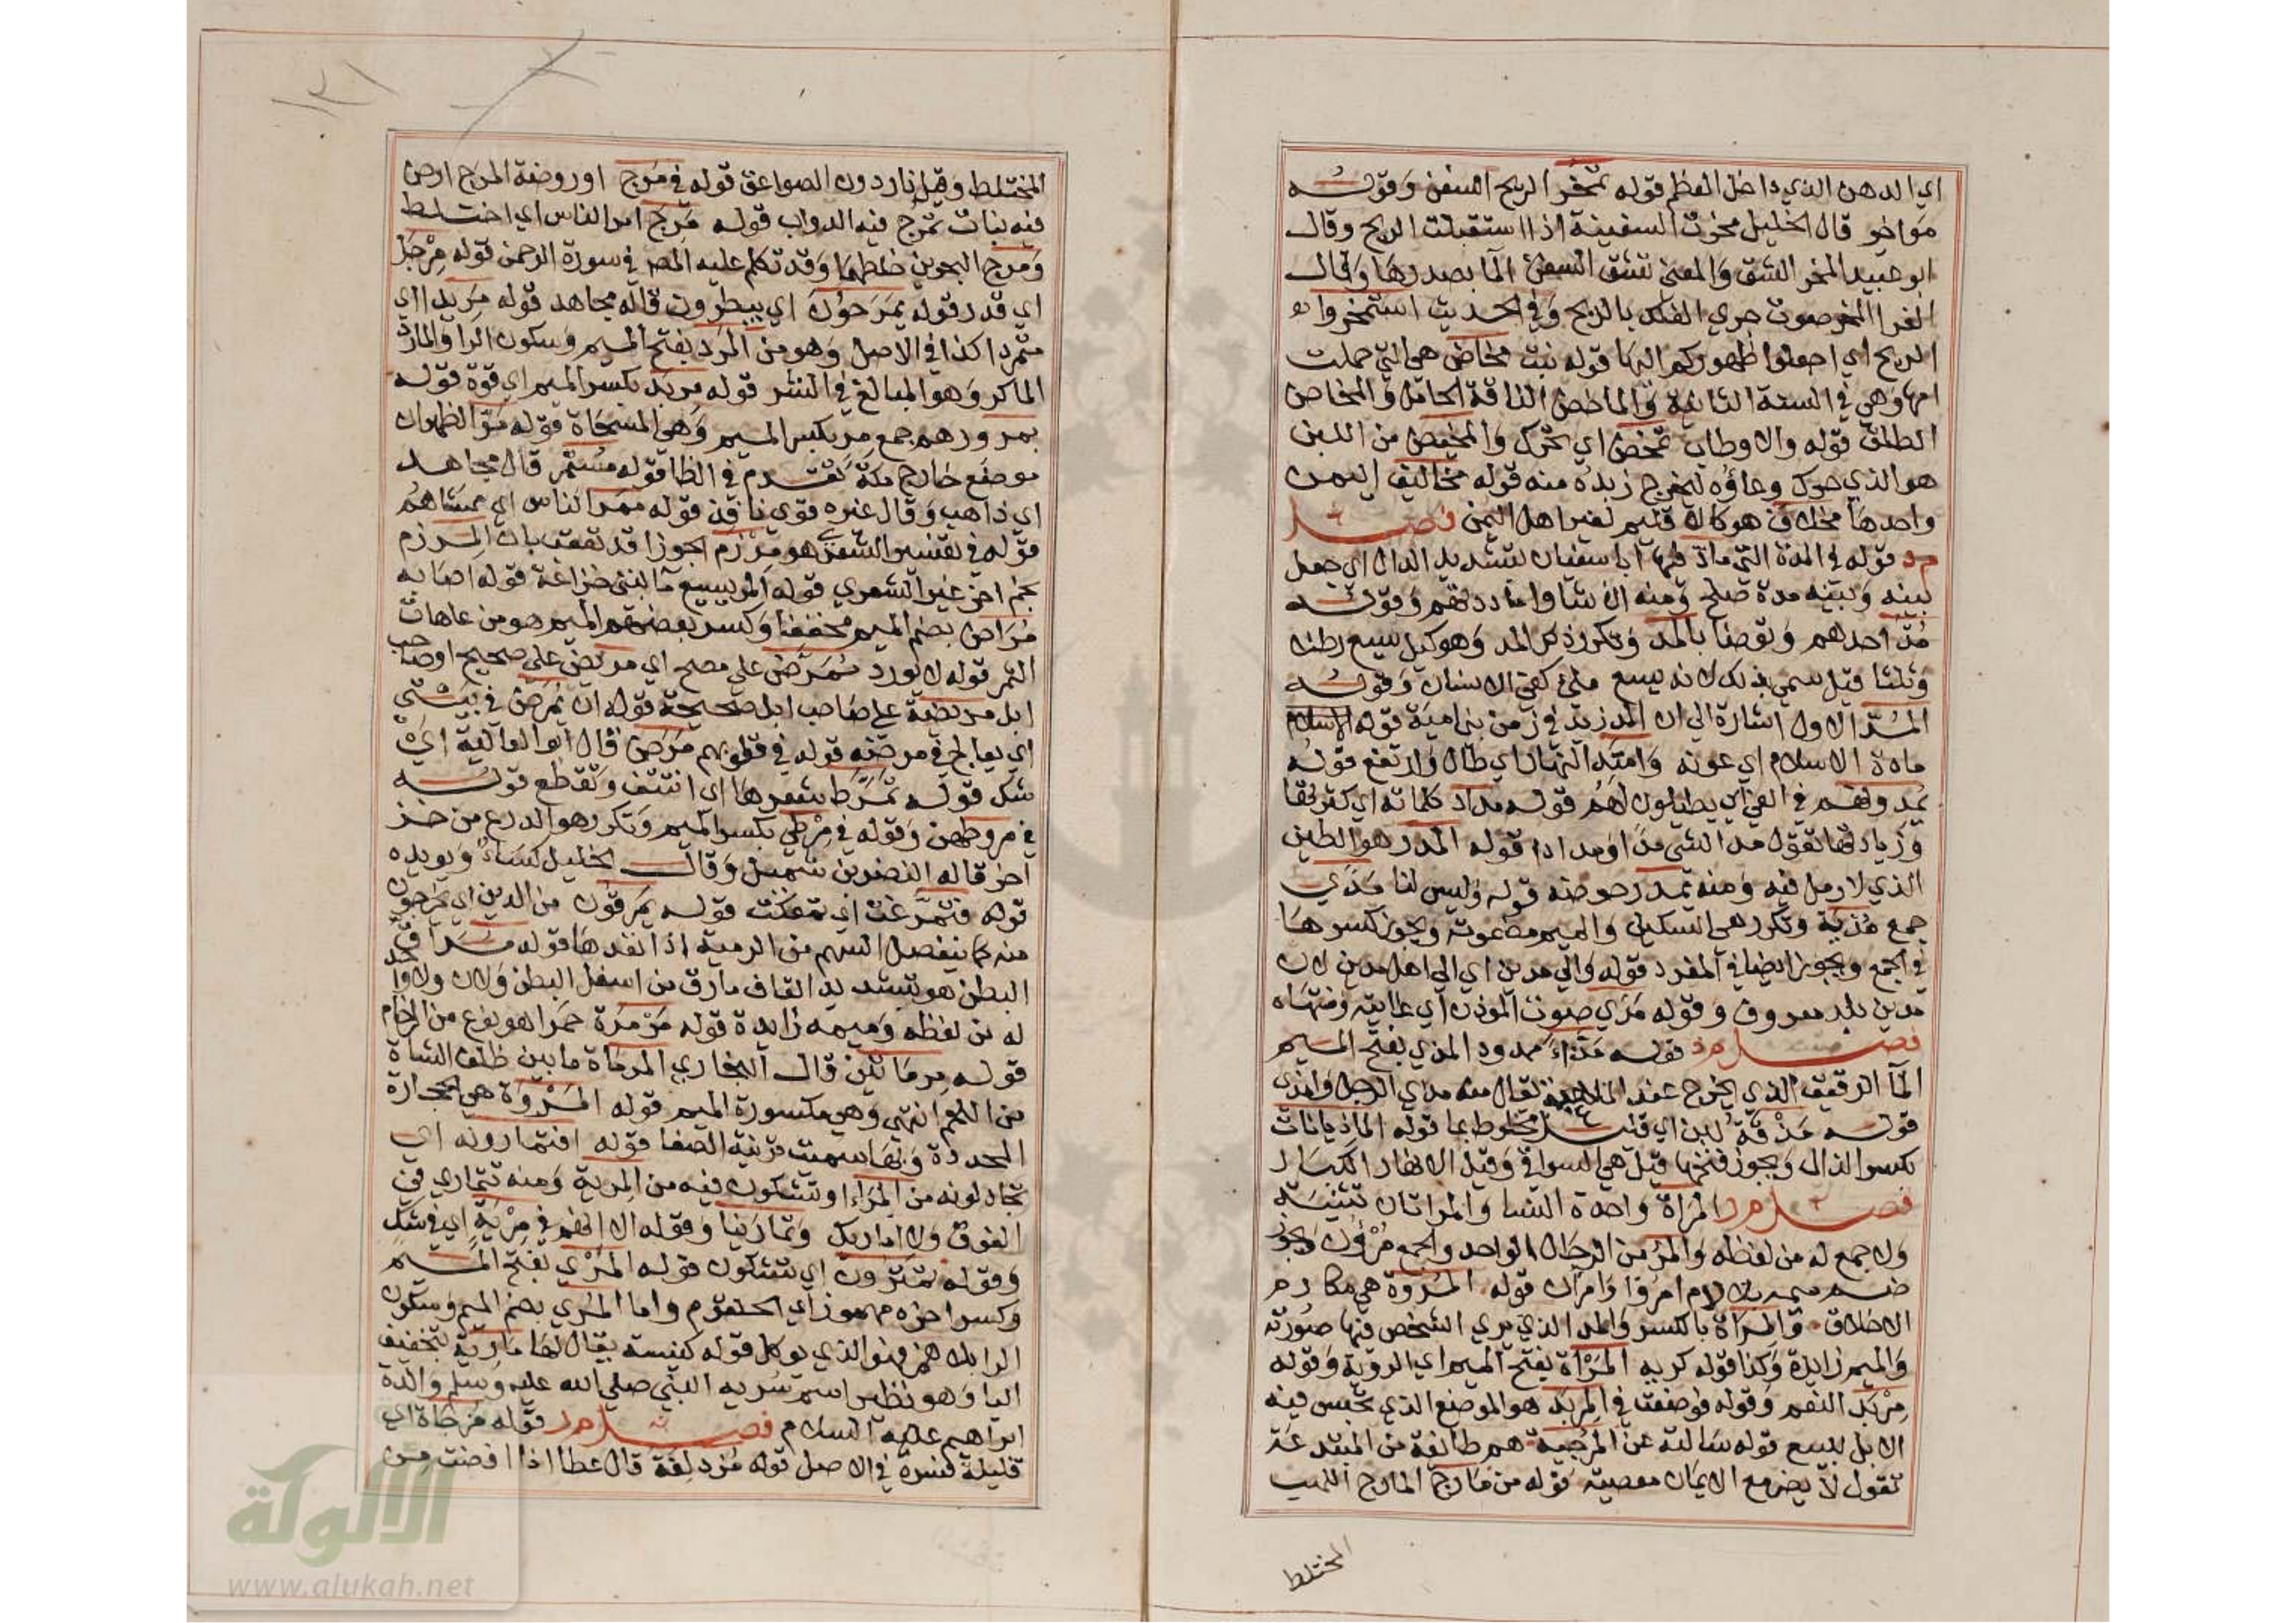 اي الدهن الذي داخل العظم قوله تمخر الريح السفن وقوله
مواخر قال الخليل مخرت السفينة اذا استقبلت الريح وقال
ابو عبيد المخر الشق والمعنى تشق السفن الما بصدرها وقال
الفرا المخر صوت جري الفلك بالريح وفي الحديث استمخروا
الريح اي اجعلوا ظهوركم اليها قوله بنت مخاض هي التي حملت
امها وهي في السنة الثانية والماخض الناقة الحامل والمخاض
الطلق قوله والاوطاب تمخض اي تحرك والمخيض من اللبن
هو الذي حرك وعاؤه ليخرج زبده منه قوله مخاليف اليمن
واحدها مخلاف هو كالاقليم لغير اهل اليمن فصل
م د قوله في المدة التي ماد فيها ابا سفيان بتشديد الدال اي جعل
بينه وبينه مدة صلح ومنه ان شاوا ماددتهم وقوله
مد احدهم وتوضا بالمد وتكرر ذكر المد وهو كيل يسع رطلا
وثلثا قيل سمي بذلك لانه يسع ملئ كفي الانسان وقوله
المد الاول اشارة الى ان المد زيد في زمن بني امية قوله الاسلام
مادة الاسلام اي عونه وامتد النهار اي طال وارتفع قوله
يمدونهم في الغي اي يطيلون لهم قوله مداد كلماته اي كثرتها
وزيادتها تقول مد الشي مدا ومدادا قوله المدر هو الطين
الذي لا رمل فيه ومنه يمدر حوضه قوله وليس لنا مدي
جمع مدية وتكرر هي السكين والميم مضمومة ويجوز كسرها
في الجمع ويجوز ايضا في المفرد قوله والى مدين اي الى اهل مدين لان
مدين بلد معروف وقوله مدي صوت الموذن اي غايته ومنتهاه
فصل م ذ قوله مذاء ممدود المذي بفتح الميم
الما الرقيق الذي يخرج عند الملاعبة يقال منه مذي الرجل وامذى
قوله مذقة لبن اي قليل مخلوط بما قوله الماذيانات
بكسر الذال ويجوز فتحها قيل هي السواقي وقيل الانهار الكبار
فصل م ر المراة واحدة النسا والمراتان تثنية
ولا جمع له من لفظه والمرؤ من الرجال الواحد والجمع مرؤن ويجوز
ضم ميمه بلا لام امرؤا وامران قوله المروة هي مكارم
الاخلاق والمراة بالكسر والمد الذي يري الشخص فيها صورته
والميم زايدة وكذا قوله كريه المرآة بفتح الميم اي الروية وقوله
مربد النعم وقوله فوضعت في المربد هو الموضع الذي تحبس فيه
الابل للبيع قوله سالته عن المرجية هم طائفة من المبتدعة
تقول لا يضر مع الايمان معصية قوله من مارج المارج اللهب
المختلط
المختلط وقيل نار دون الصواعق قوله في مرج او روضة المرج ارض
فيه نبات تمرج فيه الدواب قوله مرج امر الناس اي اختلط
ومرج البحرين خلطهما وقد تكلم عليه المص في سورة الرحمن قوله مرجل
اي قدر قوله يمرحون اي يبطرون قاله مجاهد قوله مريدا اي
متمردا كذا في الاصل وهو من المرد بفتح الميم وسكون الرا والمارد
الماكر وهو المبالغ في الشر قوله مرة بكسر الميم اي قوة قوله
بمرورهم جمع مر بكسر الميم وهي المسحاة قوله مر الظهران
موضع خارج مكة تقدم في الظا قوله مستمر قال مجاهد
اي ذاهب وقال غيره قوي نافذ قوله ممر الناس اي ممشاهم
قوله في تفسير الشعرى هو مرزم الجوزا قد تعقب بان المرزم
نجم اخر غير الشعري قوله المريسيع ما لبني خزاعة قوله اصابه
مراض بضم الميم مخففا وكسر بعضهم الميم هو من عاهات
الثمر قوله لا يورد ممرض على مصح اي مريض على صحيح او صاحب
ابل مريضة على صاحب ابل صحيحة قوله ان يمرض في بيتي
اي يعالج في مرضه قوله في قلوبهم مرض قال ابو العالية اي
شك قوله تمرط شعرها اي انتتف وتقطع قوله
في مروطهن وقوله في مرطي بكسر الميم وتكرر هو الدرع من خز
اخر قاله النضر بن شميل وقال الخليل كساء ويويده
قوله فتمرغت اي تمعكت قوله يمرقون من الدين اي يخرجون
منه كما ينفصل السهم من الرمية اذا نفذها قوله مراق
البطن هو بتشديد القاف مارق من اسفل البطن ولان ولا واحد
له من لفظه وميمه زايدة قوله مرمرة حمرا هو نوع من الرخام
قوله مرماتين قال البخاري المرماة ما بين ظلف الشاة
من اللحم انتهى وهي مكسورة الميم قوله المروة هي الحجارة
المحددة وبها سميت قرينة الصفا قوله افتمارونه اي
تجادلونه من المراء او تشكون فيه من المرية ومنه تتماري في
الفوق ولا اماريك وتمارينا وقوله الا انهم في مرية اي في شك
وقوله تمترون اي تشكون قوله المري بفتح الميم
وكسر اخره مهموز اي الحلقوم واما المري بضم الميم وسكون
الرا بلا همز فهو الذي يوكل قوله كنيسة يقال لها مارية بتخفيف
اليا وهو نظير اسم سرية النبي صلى الله عليه وسلم والدة
ابراهيم عليه السلام فصل م ز قوله مزجاة اي
قليلة فسره في الاصل قوله مزدلفة قال عطا اذا افضت من
الألوكة
www.alukah.net